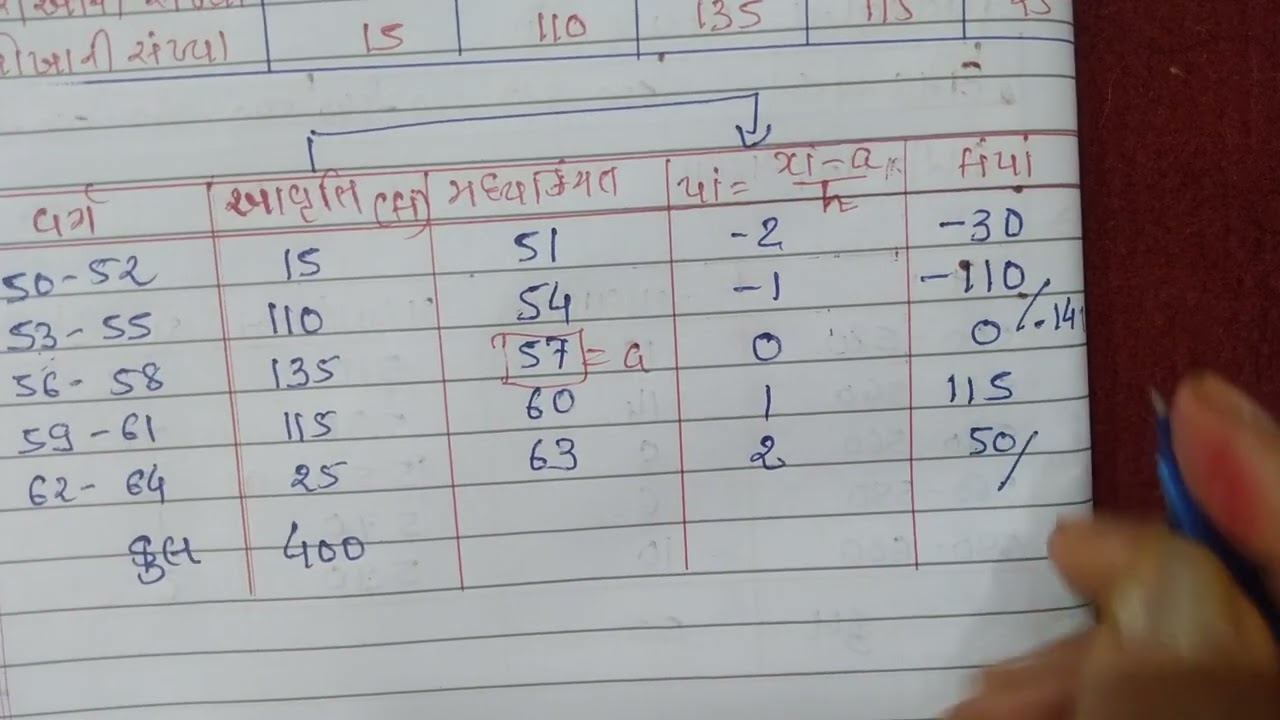 સંખ્યા 15 110 135 115
વર્ગ આવૃત્તિ (fi) મધ્યકિંમત ui = xi-a / h fiui
50-52 15 51 -2 -30
53-55 110 54 -1 -110
56-58 135 57 = a 0 0
59-61 115 60 1 115
62-64 25 63 2 50
કુલ 400